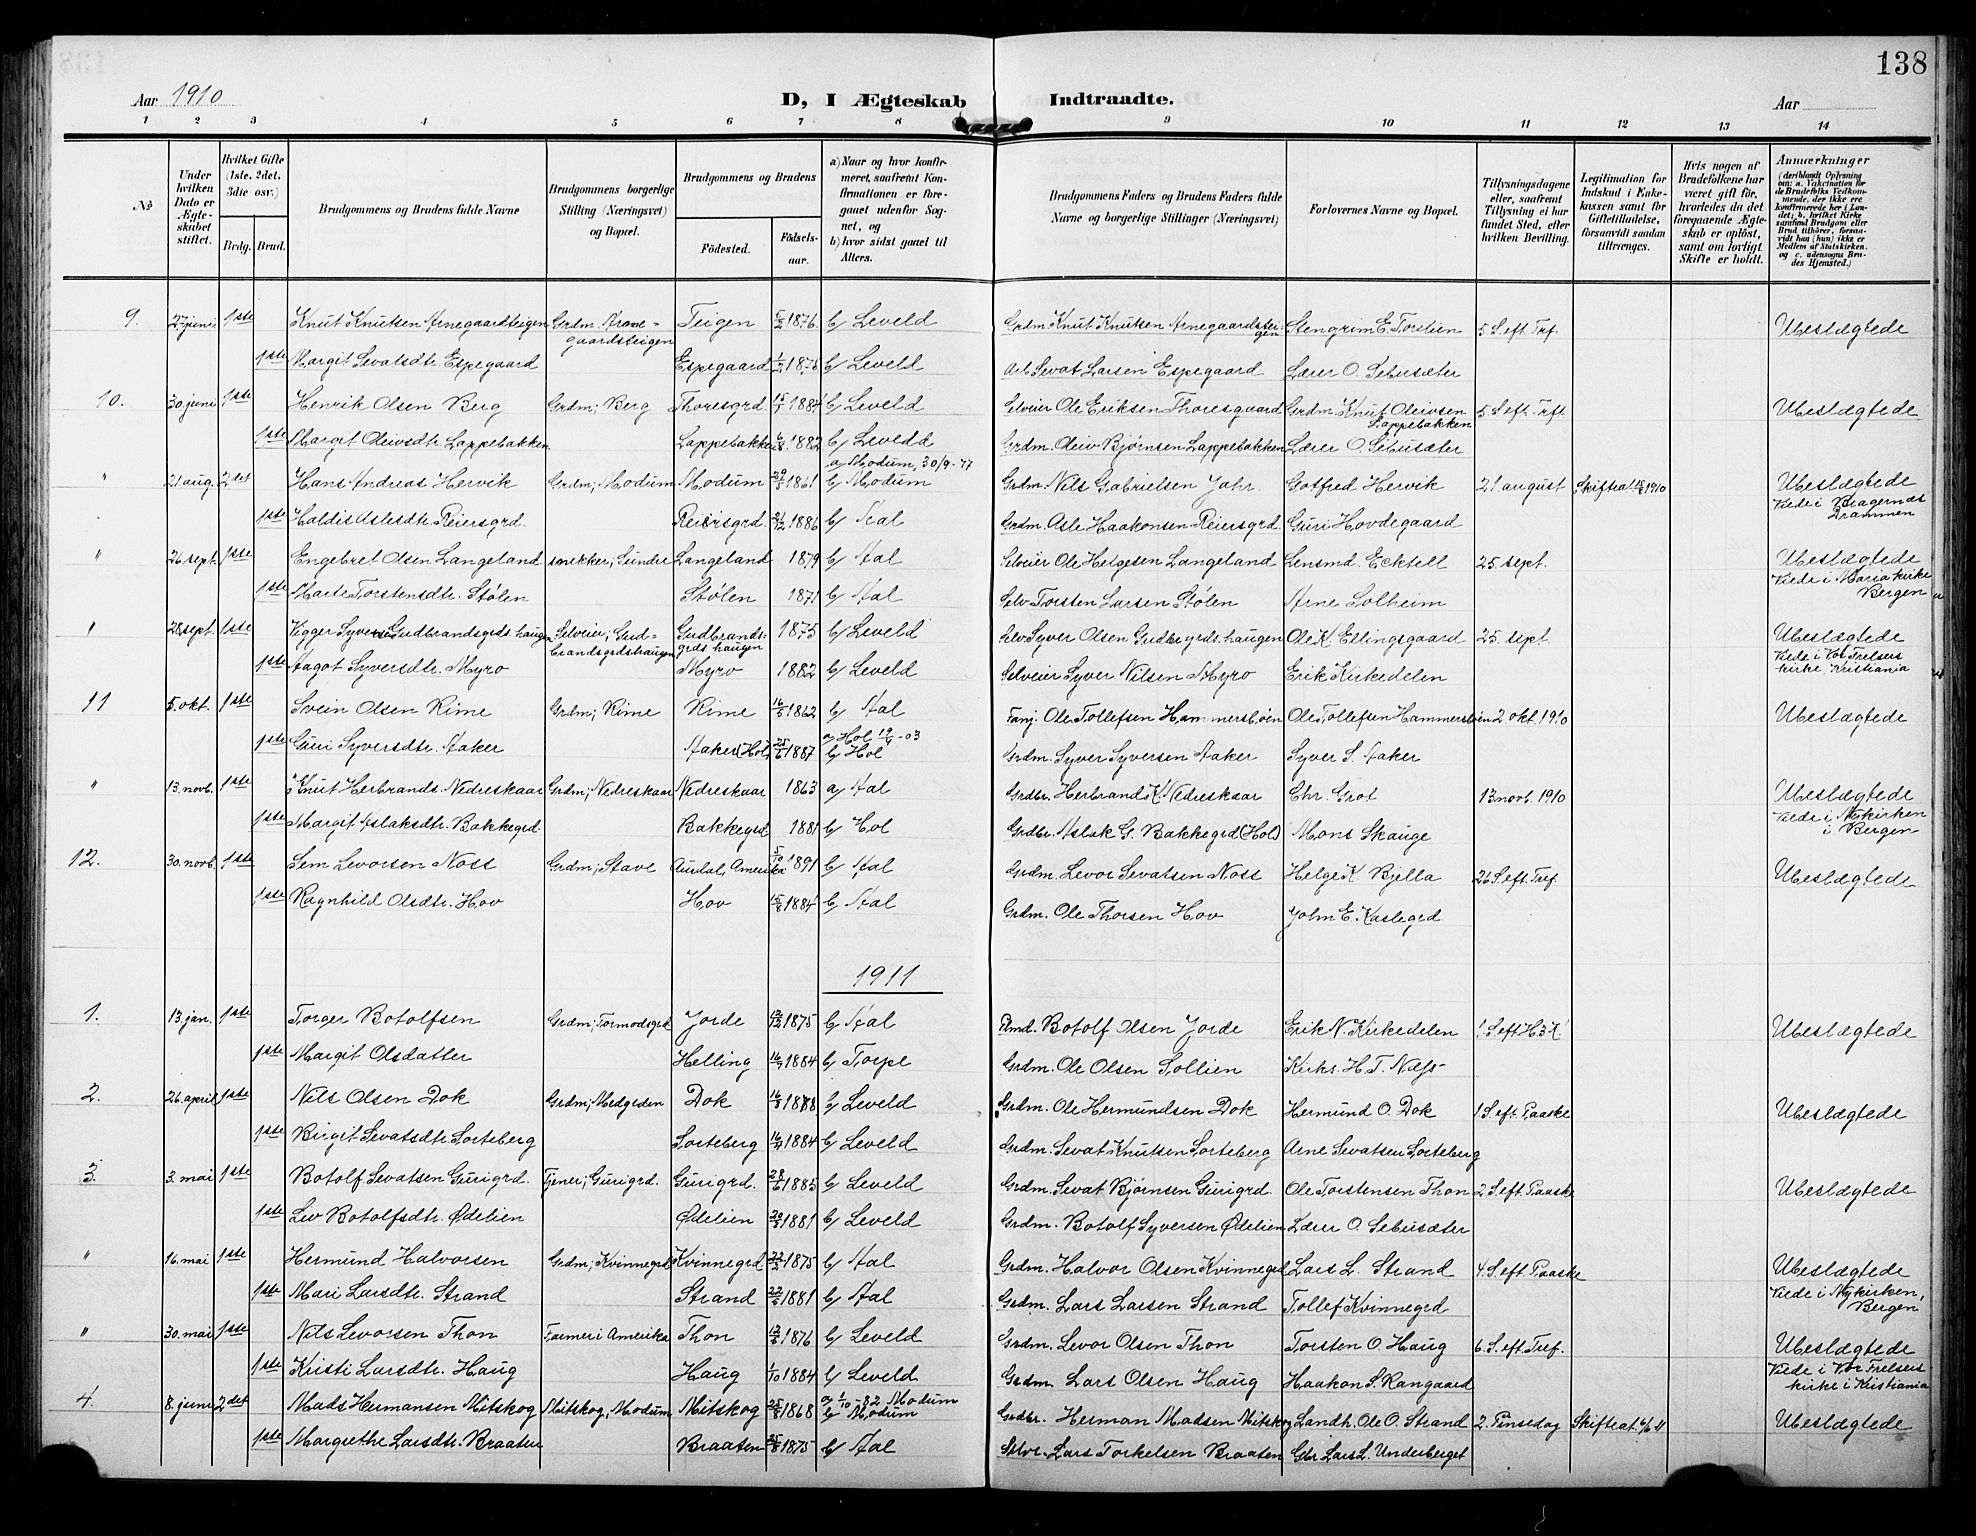 138
Aar 1910
D, I Ægteskab Indtraadte.
Aar
1 2 3 4 5 6 7 8 9 10 11 12 13 14
No
Under hvilken Dato er Ægteskabet stiftet.
Hvilket Gifte (1ste, 2det, 3die osv.)
Brdg. Brud.
Brudgommens og Brudens fulde Navne
Brudgommens borgerlige Stilling (Næringsvei) og Bopæl.
Brudgommens og Brudens
Födested. Födsels-aar.
a) Naar og hvor konfirmeret, saafremt Konfirmationen er foregaaet udenfor Sognet, og
b) hvor sidst gaaet til Alters.
Brudgommens Faders og Brudens Faders fulde Navne og borgerlige Stillinger (Næringsvei)
Forlovernes Navne og Bopæl.
Tillysningsdagene eller, saafremt Tillysning ei har fundet Sted, efter hvilken Bevilling.
Legitimation for Indskud i Enkekassen samt for Giftetilladelse, forsaavidt saadan tiltrænges.
Hvis nogen af Brudefolkene har været gift för, hvorledes da det foregaaende Ægteskab er oplöst, samt om lovligt Skifte er holdt.
Anmærkninger (deriblandt Oplysning om: a. Vakcination for de Brudefolks Vedkommende, der ikke ere konfirmerede her i Landet; b. hvilket Kirkesamfund Brudgom eller Brud tilhörer, forsaavidt han (hun) ikke er Medlem af Statskirken, og c. udensogns Brudes Hjemsted.)
9. 27 juni 1ste Knut Knutsen Arnegaardsteigen Grdm. Arnegaardsteigen Teigen 1876 b/ Leveld Grdm. Knut Knutsen Arnegaardsteigen Stengrim E. Torslien 5. S. eft. Trf. Ubeslægtede
1ste Margit Sevatsdtr. Espegaard Espegaard 1875 b/ Leveld Arb. Sevat Larsen Espegaard Lærer O. Sebusæter
10. 30 juni 1ste Henrik Olsen Berg Grdm; Berg Thoresgrd 1884 b/ Leveld Selveier Ole Eriksen Thoresgaard Grdm. Knut Oleivsen Lappebakken 5. S. eft. Trf. Ubeslægtede
1ste Margit Oleivsdtr. Lappebakken Lappebakken 1882 b/ Leveld Grdm. Oleiv Bjørnsen Lappebakken Lærer O. Sebusæter
" 21 aug. 2det Hans Andreas Hervik Grdm; Modum Modum 1861 a/ Modum, 30/9-77 b/ Modum Grdm. Nils Gabrielsen Jahr Gotfred Hervik 21 august Skifteat 1910 Ubeslægtede
1ste Haldis Aslesdtr. Reiersgrd. Reiersgrd. 1886 b/ Aal Grdm. Asle Haakonsen Reiersgrd. Guri Hovdegaard Viede i Bragernæs Drammen
" 26 sept. 1ste Engebret Olsen Langeland snekker; Sundre Langeland 1879 b/ Aal Selveier Ole Helgesen Langeland Lensmd. Ecktell 25. sept. Ubeslægtede
1ste Marte Torstensdtr. Stølen Stølen 1871 b/ Aal Selv Torsten Larsen Stølen Arne Solheim Viede i Mariakirke Bergen
" 28 sept. 1ste Vigger Syversen Gudbrandsgrdshaugen Selveier; Gudbrandsgrdshaugen Gudbrandsgrdshaugen 1875 b/ Leveld Selv Syver Olsen Gudbr.grds.haugen Ole K. Ellingsgaard 25. sept. Ubeslægtede
1ste Aagot Syversdtr. Myro Myro 1882 b/ Leveld Selveier Syver Nilsen Myro Erik Kirkedelen Viede i Vor Frelsers kirke, Kristiania
11 5. okt. 1ste Svein Olsen Rime Grdm; Rime Rime 16/5 1862 b/ Aal Fanj. Ole Tollefsen Hammersbøen Ole Tollefsen Hammersbøen 2 okt. 1910 Ubeslægtede
1ste Guri Syversdtr. Aaker Aaker (Hol) 1887 a/ Hol -03 b/ Hol Grdm. Syver Syversen Aaker Syver S. Aaker
" 13. novb. 1ste Knut Herbrands. Nedreskaar Grdm; Nedreskaar Nedreskaar 1863 a/ Aal Grdbr. Herbrand K. Nedreskaar Chr. Grot 13 novb. 1910 Ubeslægtede
1ste Margit Aslaksdtr. Bakkegrd. Bakkegrd 1881 b/ Hol Grdbr. Aslak G. Bakkegrd (Hol) Mons Skauge Viede i Nykirken i Bergen
12. 30. novb. 1ste Sem Levorsen Noss Grdm; Stave Aurdal, Amerika 5/10 1891 b/ Aal Grdm. Levor Sevatsen Noss Helge K Bjella 26 S. eft. Tref. Ubeslægtede
1ste Ragnhild Olsdtr. Hov Hov 15/8 1884 b/ Aal Grdm. Ole Thorsen Hov John E. Kaslegrd
1911
1. 13. jan. 1ste Torger Botolfsen Grdm; Tormodsgrd Jorde 1875 b/ Aal Botolf Olsen Jorde Erik N. Kirkedelen 1. S. eft H3K Ubeslægtede
1ste Margit Olsdatter Helling 1884 b/ Torpe Grdm. Ole Olsen Sollien Kirks. H. T. Næss
2. 26. april 1ste Nils Olsen Dok Grdm; Medgeden Dok 1888 b/ Leveld Grdm. Ole Hermundsen Dok Hermund O. Dok 1 S. eft. Paaske Ubeslægtede
1ste Birgit Sevatsdtr Sorteberg Sorteberg 1884 b/ Leveld Grdm. Sevat Knutsen Sorteberg Arne Sevatsen Sorteberg
3. 3. mai 1ste Botolf Sevatsen Gurigrd. Tjener; Gurigrd. Gurigrd. 28/6 1885 b/ Leveld Grdm. Sevat Bjørnsen Gurigrd. Ole Torstensen Thon 2 S. eft Paaske Ubeslægtede
1ste Liv Botolfsdtr. Ødelien Ødelien 1881 b/ Leveld Grdm. Botolf Syversen Ødelien Lærer O. Sebusæter
" 16. mai 1ste Hermund Halvorsen Grdm; Kvinnegrd Kvinnegrd 22/2 1875 b/ Aal Grdm. Halvor Olsen Kvinnegrd Lars L. Strand 4. S. eft Paaske Ubeslægtede
1ste Mari Larsdtr. Strand Strand 1881 b/ Aal Grdm. Lars Larsen Strand Tollef Kvinnegrd Viede i Nykirken, Bergen
" 30. mai 1ste Nils Levorsen Thon Farmer i Amerika Thon 1876 b/ Leveld Grdm. Levor Olsen Thon Torsten O. Haug 6. S. eft Tref. Ubeslægtede
1ste Kristi Larsdtr. Haug Haug 1/10 1884 b/ Leveld Grdm. Lars Olsen Haug Haakon S. Rangaard Viede i Vor Frelsers kirke i Kristiania
4. 8. juni 2det Mads Hermansen Mitskog Mitskog, Modum Mitskog 1868 a/ 1/10-82 Modum b/ Modum Grdbr. Herman Madsen Mitskog Landh. Ole O. Strand 2. Pinsedag Skifteat Ubeslægtede
1ste Margrethe Larsdtr. Braaten Braaten 1875 b/ Aal Lars Torkelsen Braaten Gbr. Lars L. Underberget